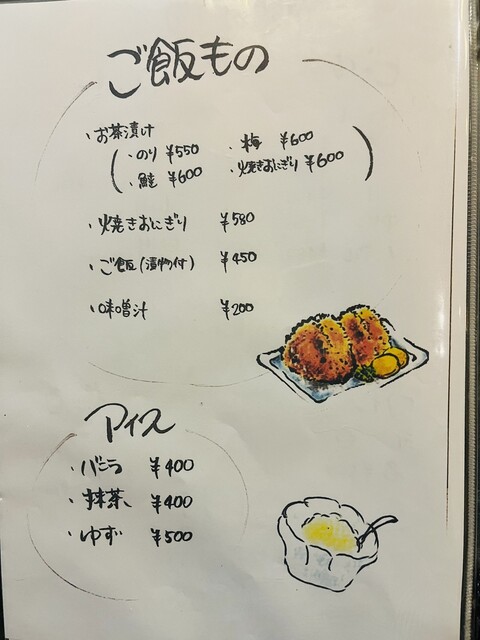 ご飯もの
・お茶漬け
・のり ¥550 ・梅 ¥600
・鮭 ¥600 ・焼きおにぎり ¥600
・焼きおにぎり ¥580
・ご飯(漬物付) ¥450
・味噌汁 ¥200
アイス
・バニラ ¥400
・抹茶 ¥400
・ゆず ¥500